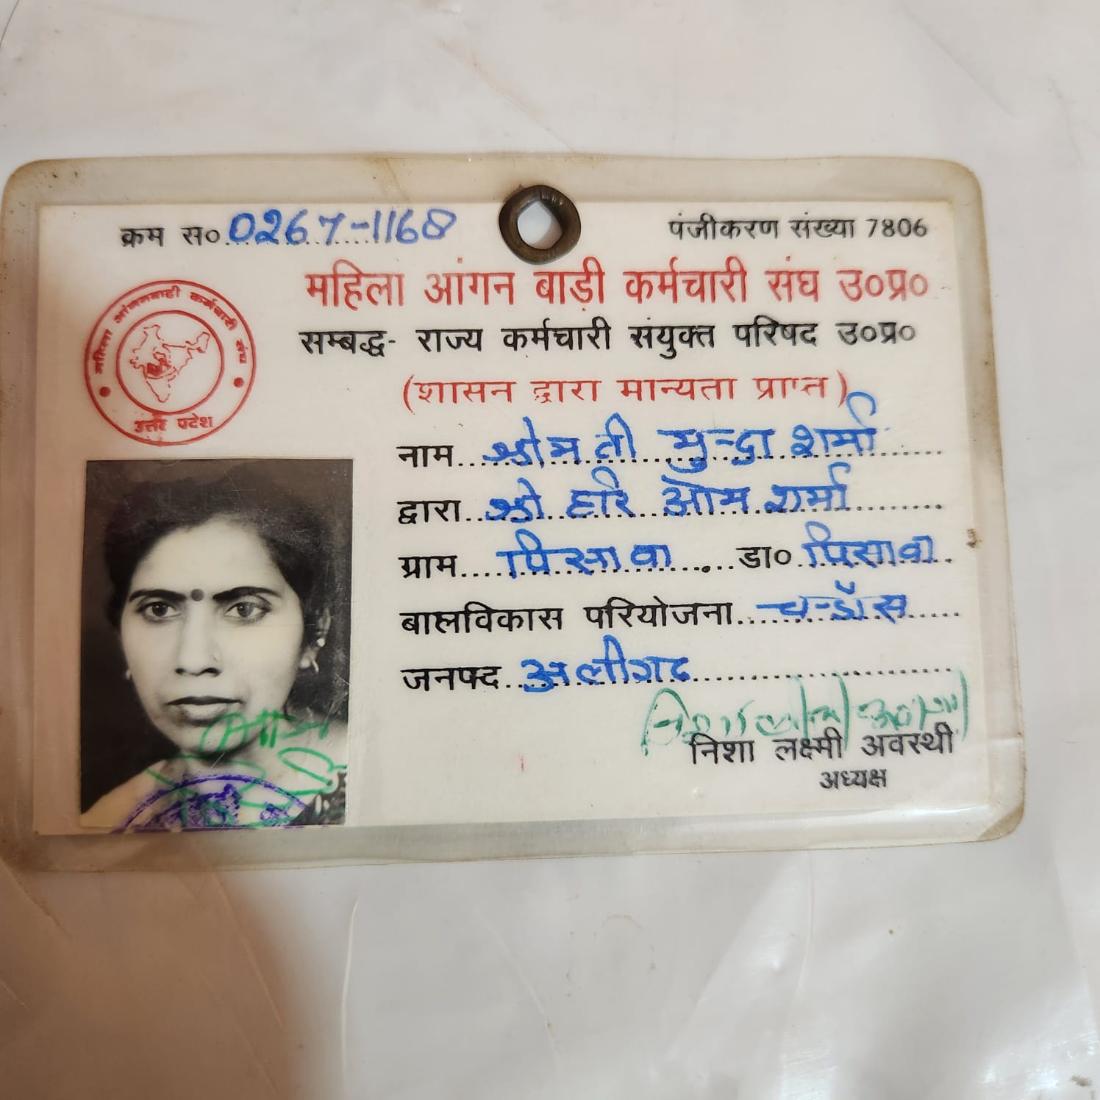 क्रम स० 0267-1168
पंजीकरण संख्या 7806
महिला आंगन बाड़ी कर्मचारी संघ उ०प्र०
सम्बद्ध- राज्य कर्मचारी संयुक्त परिषद उ०प्र०
(शासन द्वारा मान्यता प्राप्त)
महिला आंगनबाड़ी कर्मचारी संघ
उत्तर प्रदेश
नाम श्रीमती मुन्द्रा शर्मा
द्वारा श्री हरि ओम शर्मा
ग्राम पिसावा डा० पिसावा
बालविकास परियोजना चन्डौस
जनपद अलीगढ
निशा लक्ष्मी अवस्थी
अध्यक्ष